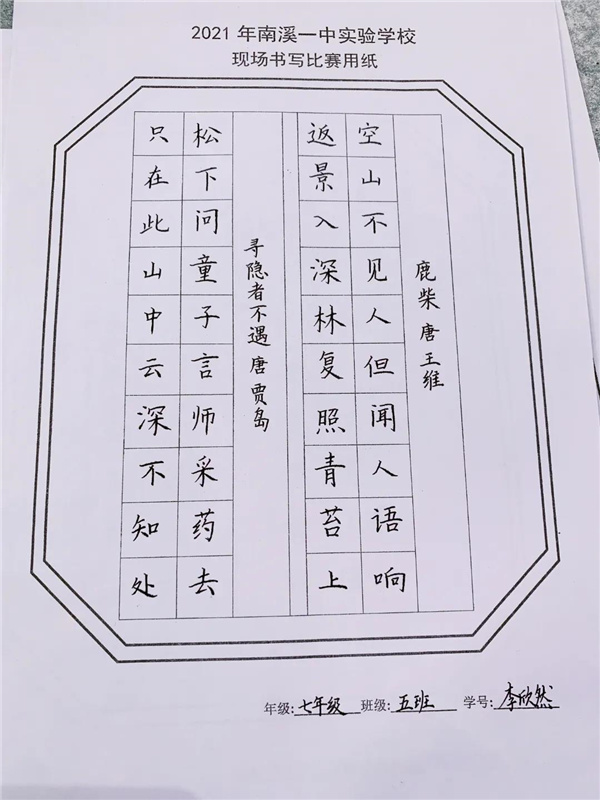 2021年南溪一中实验学校
现场书写比赛用纸
鹿柴 唐 王维
空山不见人但闻人语响
返景入深林复照青苔上
寻隐者不遇 唐 贾岛
松下问童子言师采药去
只在此山中云深不知处
年级:七年级 班级:五班 学号:李欣然